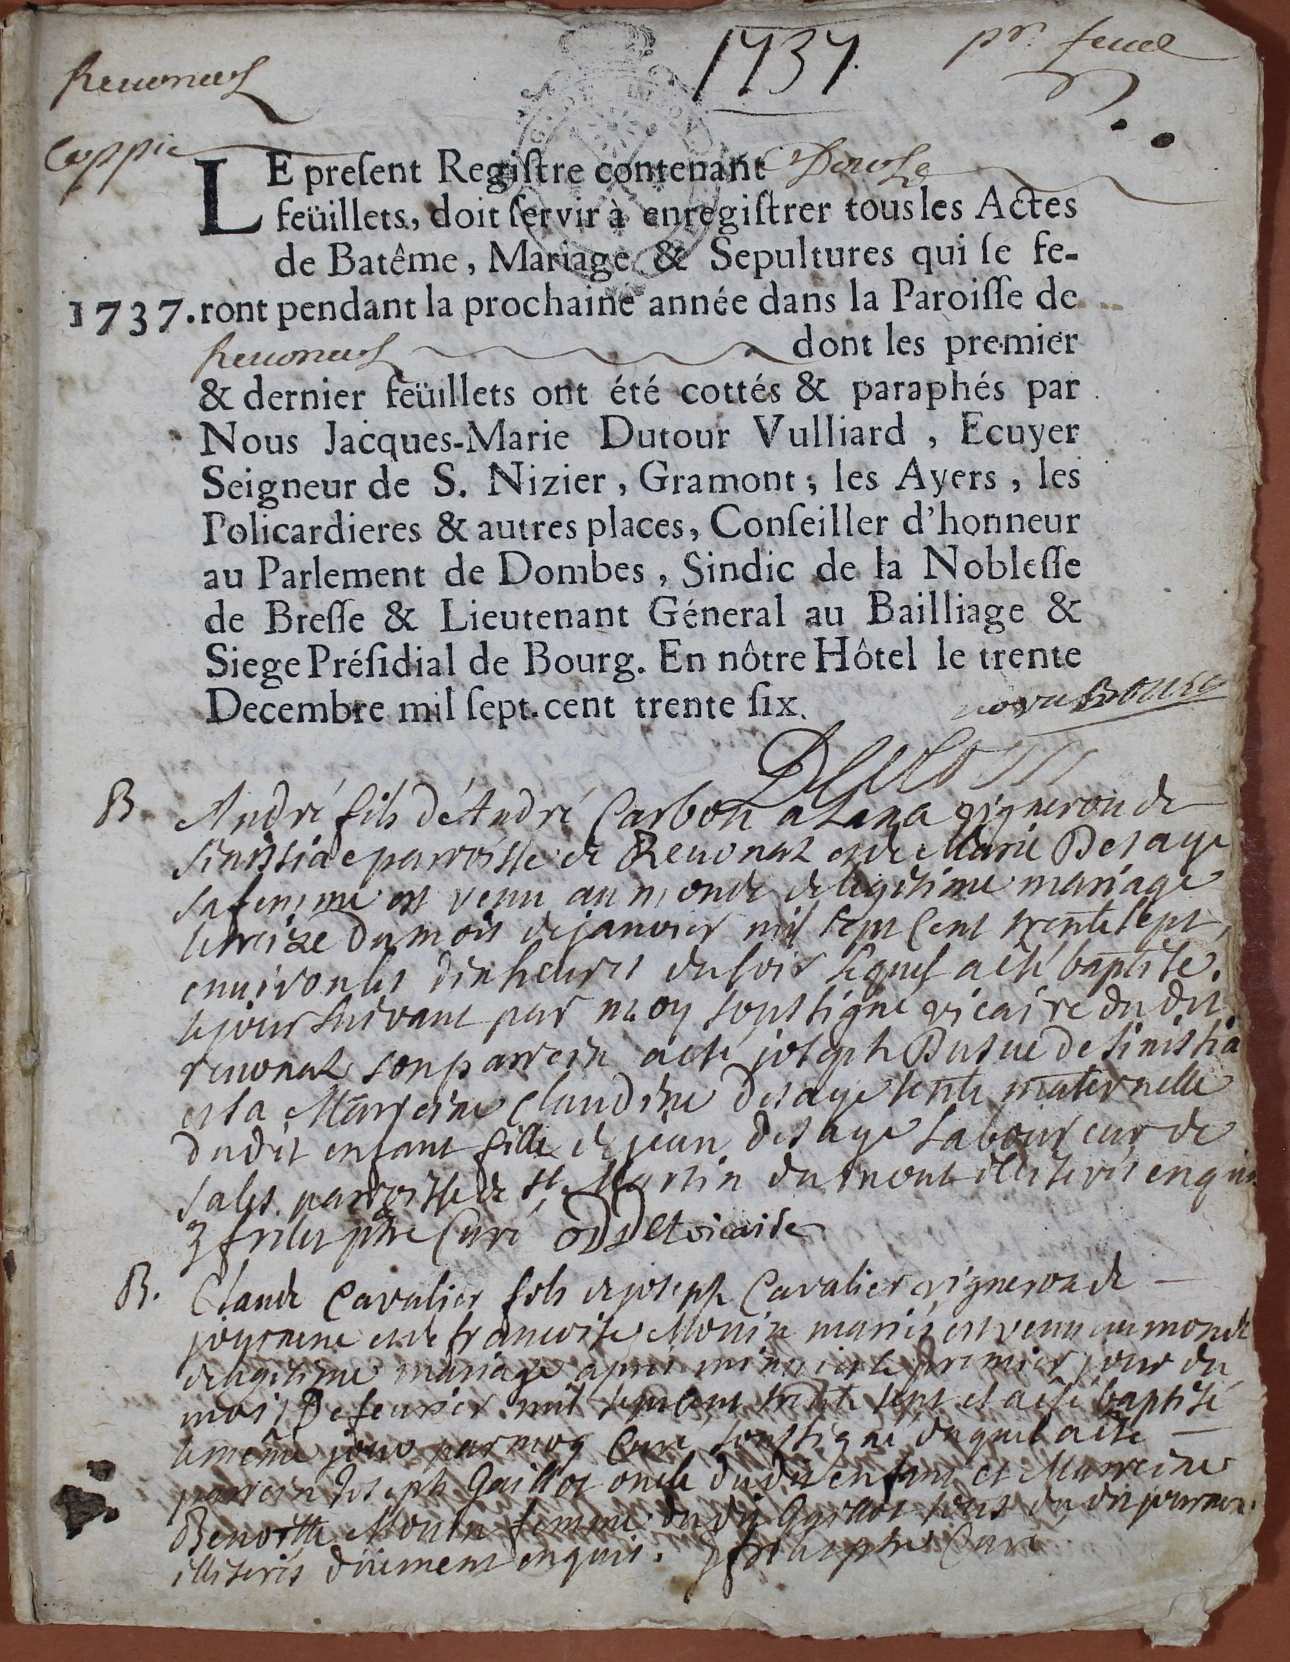 1737.
Revonas
Coppie
LE preſent Regiſtre contenant Douze
feüillets, doit ſervir à enregiſtrer tous les Actes
de Batême, Mariage & Sepultures qui ſe fe-
1737. ront pendant la prochaine année dans la Paroiſſe de
Revonas dont les premier
& dernier feüillets ont été cottés & paraphés par
Nous Jacques-Marie Dutour Vulliard, Ecuyer
Seigneur de S. Nizier, Gramont, les Ayers, les
Policardieres & autres places, Conſeiller d'honneur
au Parlement de Dombes, Sindic de la Nobleſſe
de Breſſe & Lieutenant Géneral au Bailliage &
Siege Préſidial de Bourg. En nôtre Hôtel le trente
Decembre mil ſept.cent trente ſix.
B. André fils d'André Carbon vigneron de
parroisse de Revonaz et de Marie Desaye
sa femme est venu au monde de legitime mariage
le treize du mois de janvier mil sept cent trente sept,
environ les dix heures du soir lequel a eté baptisé
le jour suivant par moy soussigné vicaire du dit
revonaz son parrein a eté joseph de sinissia
et la Marreine Claudine desaye tente maternelle
du dit enfant fille de jean desaye laboureur de
sales parroisse de st Martin du mont illiteris enquis
curé vicaire
B. Claude Cavalier fils de joseph Cavalier vigneron de
journene et de francoise Monin mariés est venu au monde
de legitime mariage apres minuict le premier jour du
mois De fevrier mil sept cent trente sept et a eté baptisé
le même jour par moy Curé soussigné duquel a eté
parrein Joseph Gaillot oncle du dit enfant et Marreine
Benoitte Monin femme du dit Gaillot tous du dit journene
illiterés dûement enquis. Curé